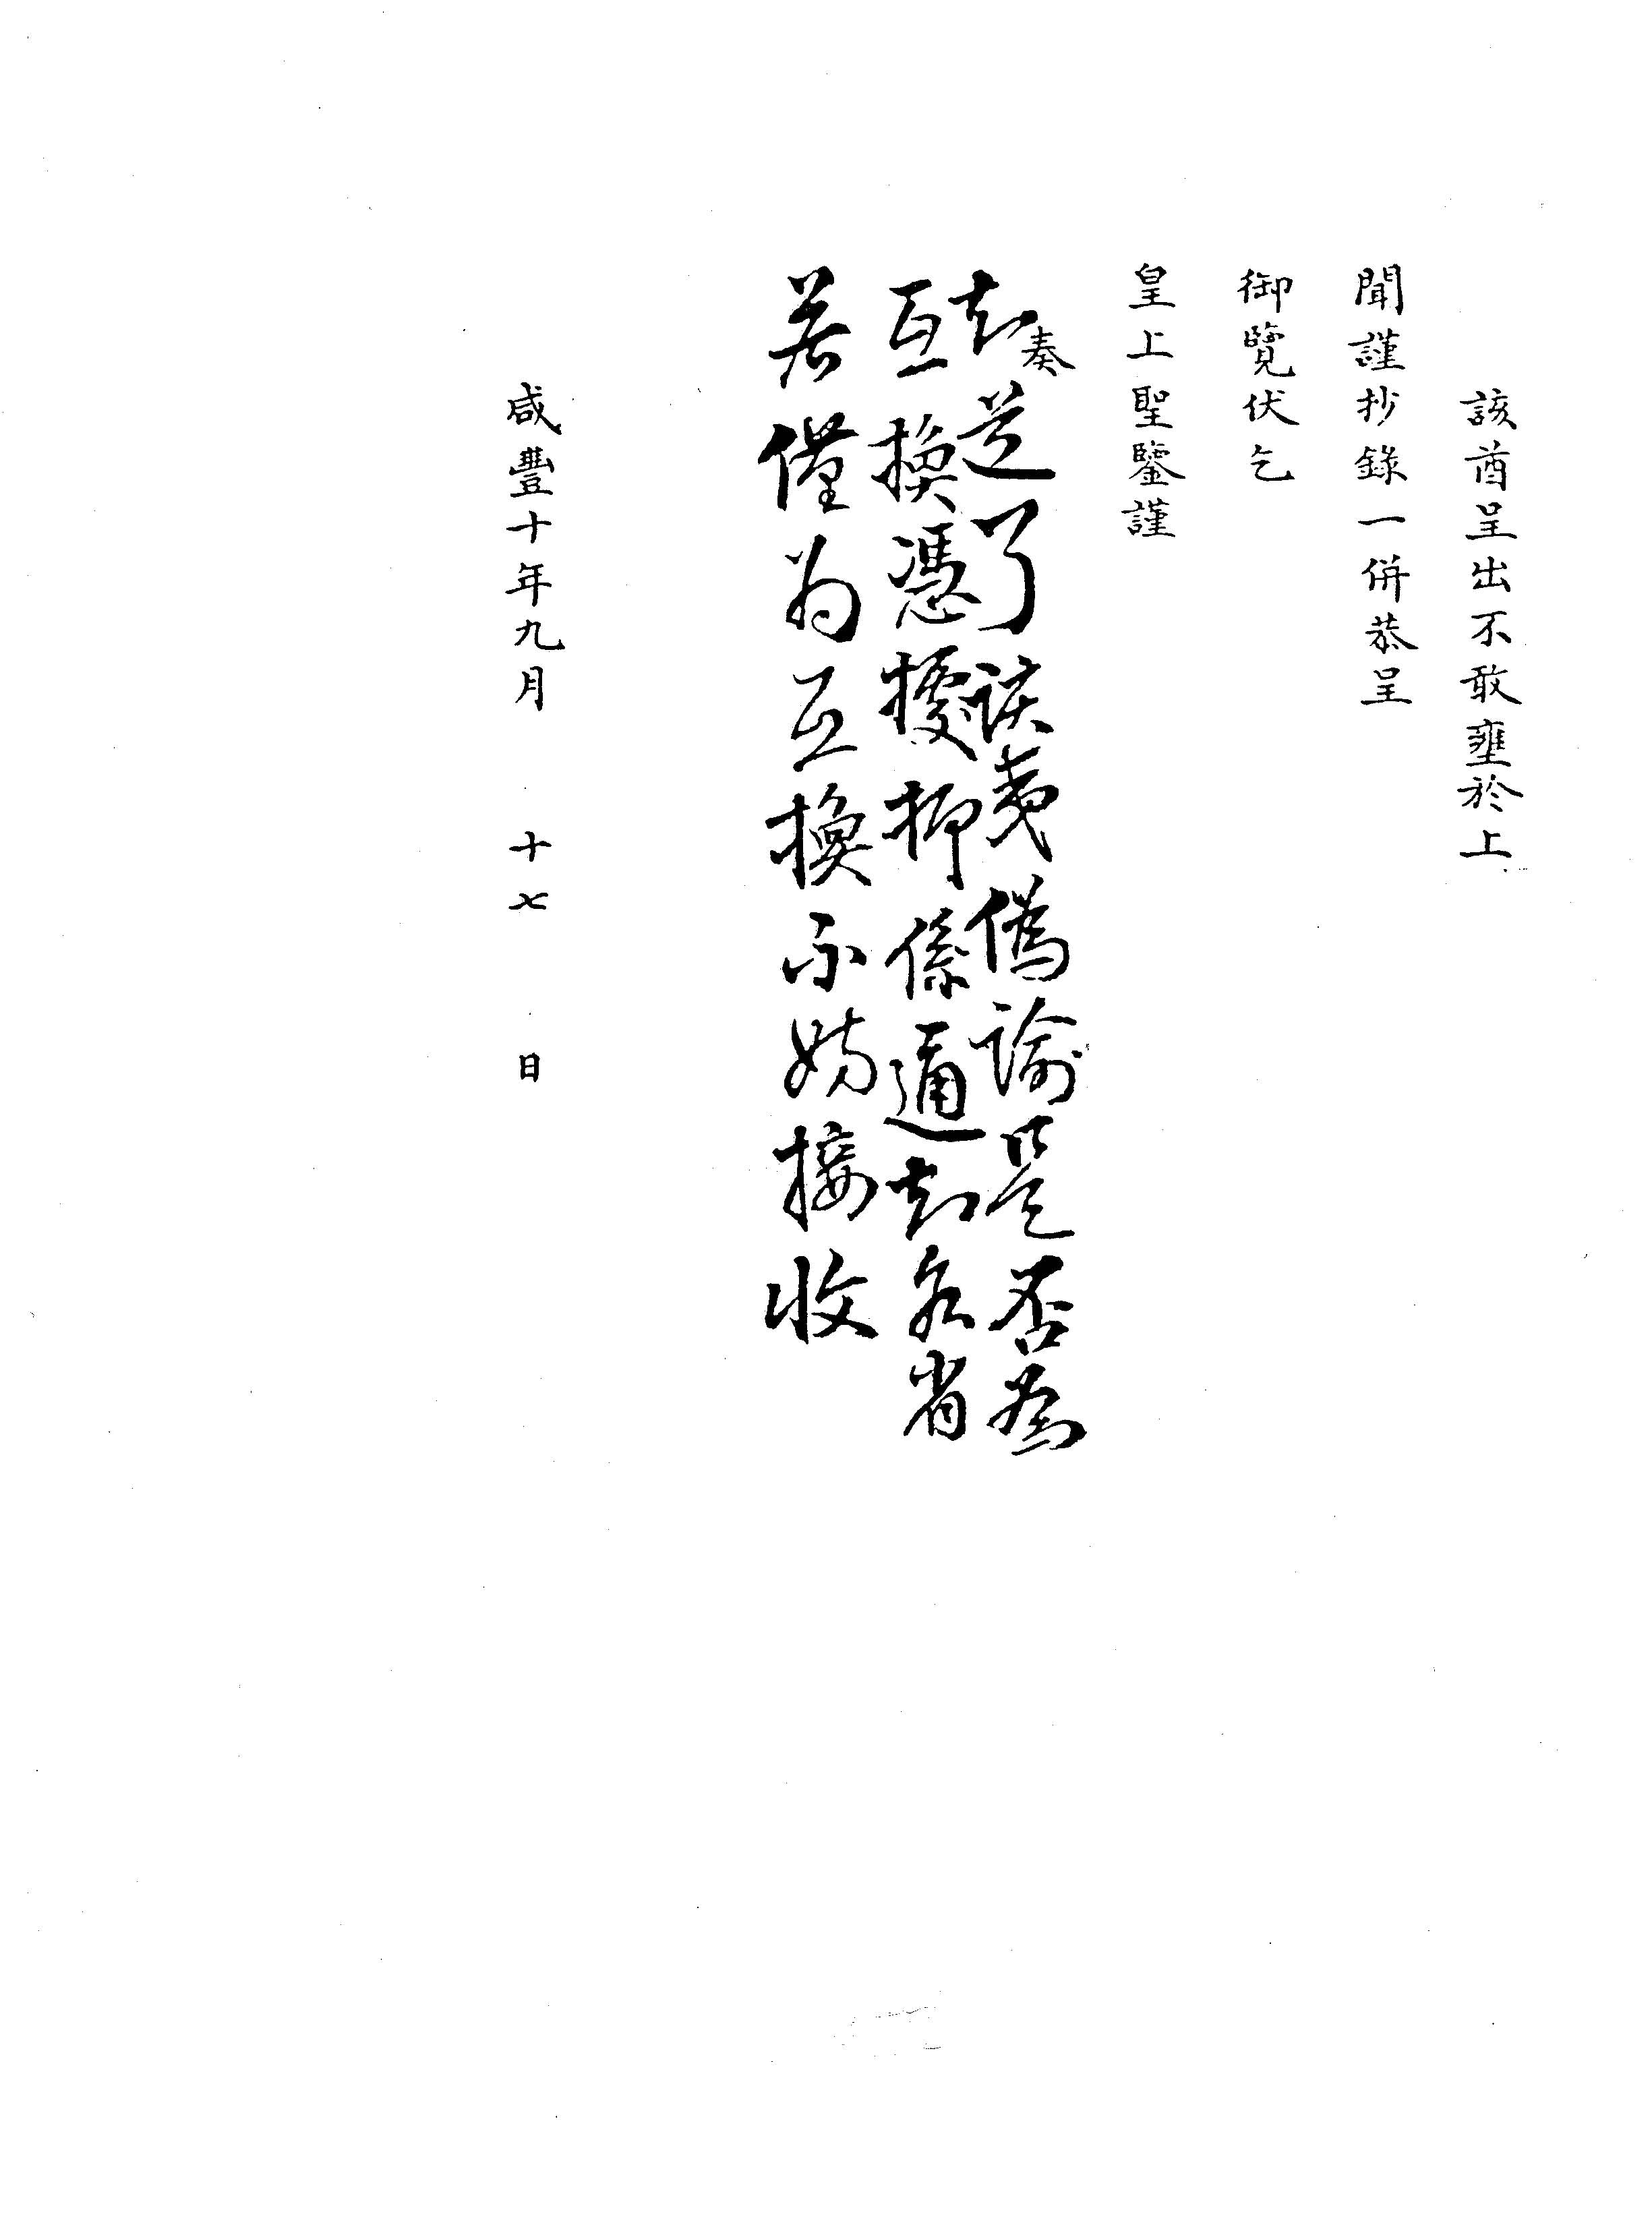 該酋呈出不敢壅於上
聞謹抄錄一併恭呈
御覽伏乞
皇上聖鑒謹
奏
知道了該夷僞諭是否為
互換憑據抑係通知各省
若僅為互換不妨接收
咸豐十年九月 十七 日